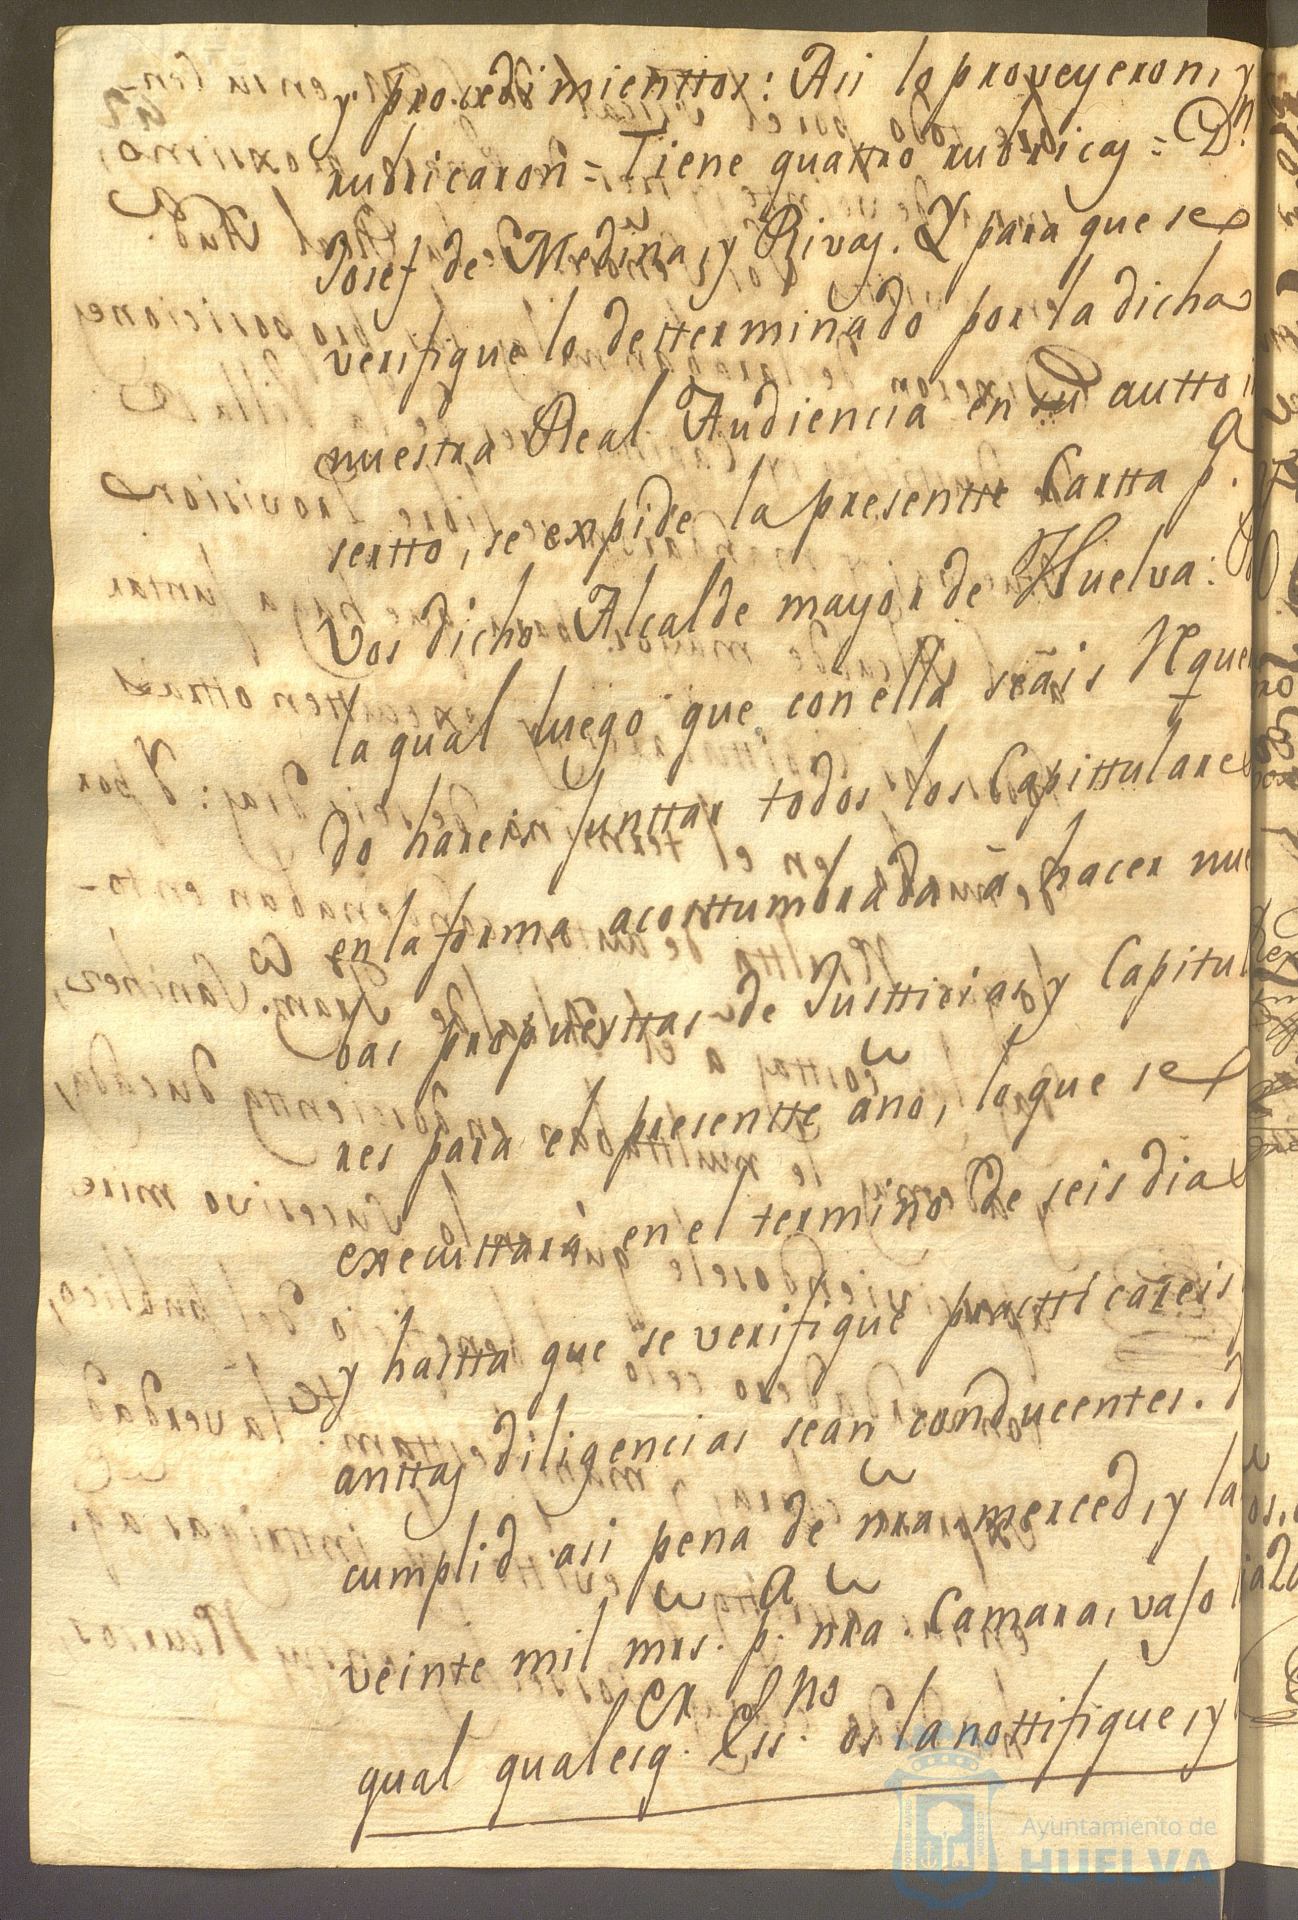 y prozedimienttos: Asi lo proveyeron, y
rubricaron = Tiene quattro rubricas = Dn.
Josef de Medina, y Rivas. Y para que se
verifique lo detterminado por la dicha
nuestra Real Audiencia en su autto in
sertto, se expide la presentte Cartta p.a
Vos dicho Alcalde mayor de Huelva: Por
la qual luego que con ella seáis Reque
do hareis junttar todos los Capittulares
en la forma acosttumbrada á hacer nue
bas propuesttas de Justticias, y Capitul
res para el presentte año, lo que se
executtará en el termino de seis dias
y hastta que se verifique practticareis
anttas diligencias sean conducentes.
cumplid asi pena de nra. merced, y la
veinte mil mrs. p.a nra. Camara, vajo la
qual qualesq.er Ess.no os la nottifique, y
Ayuntamiento de
HUELVA